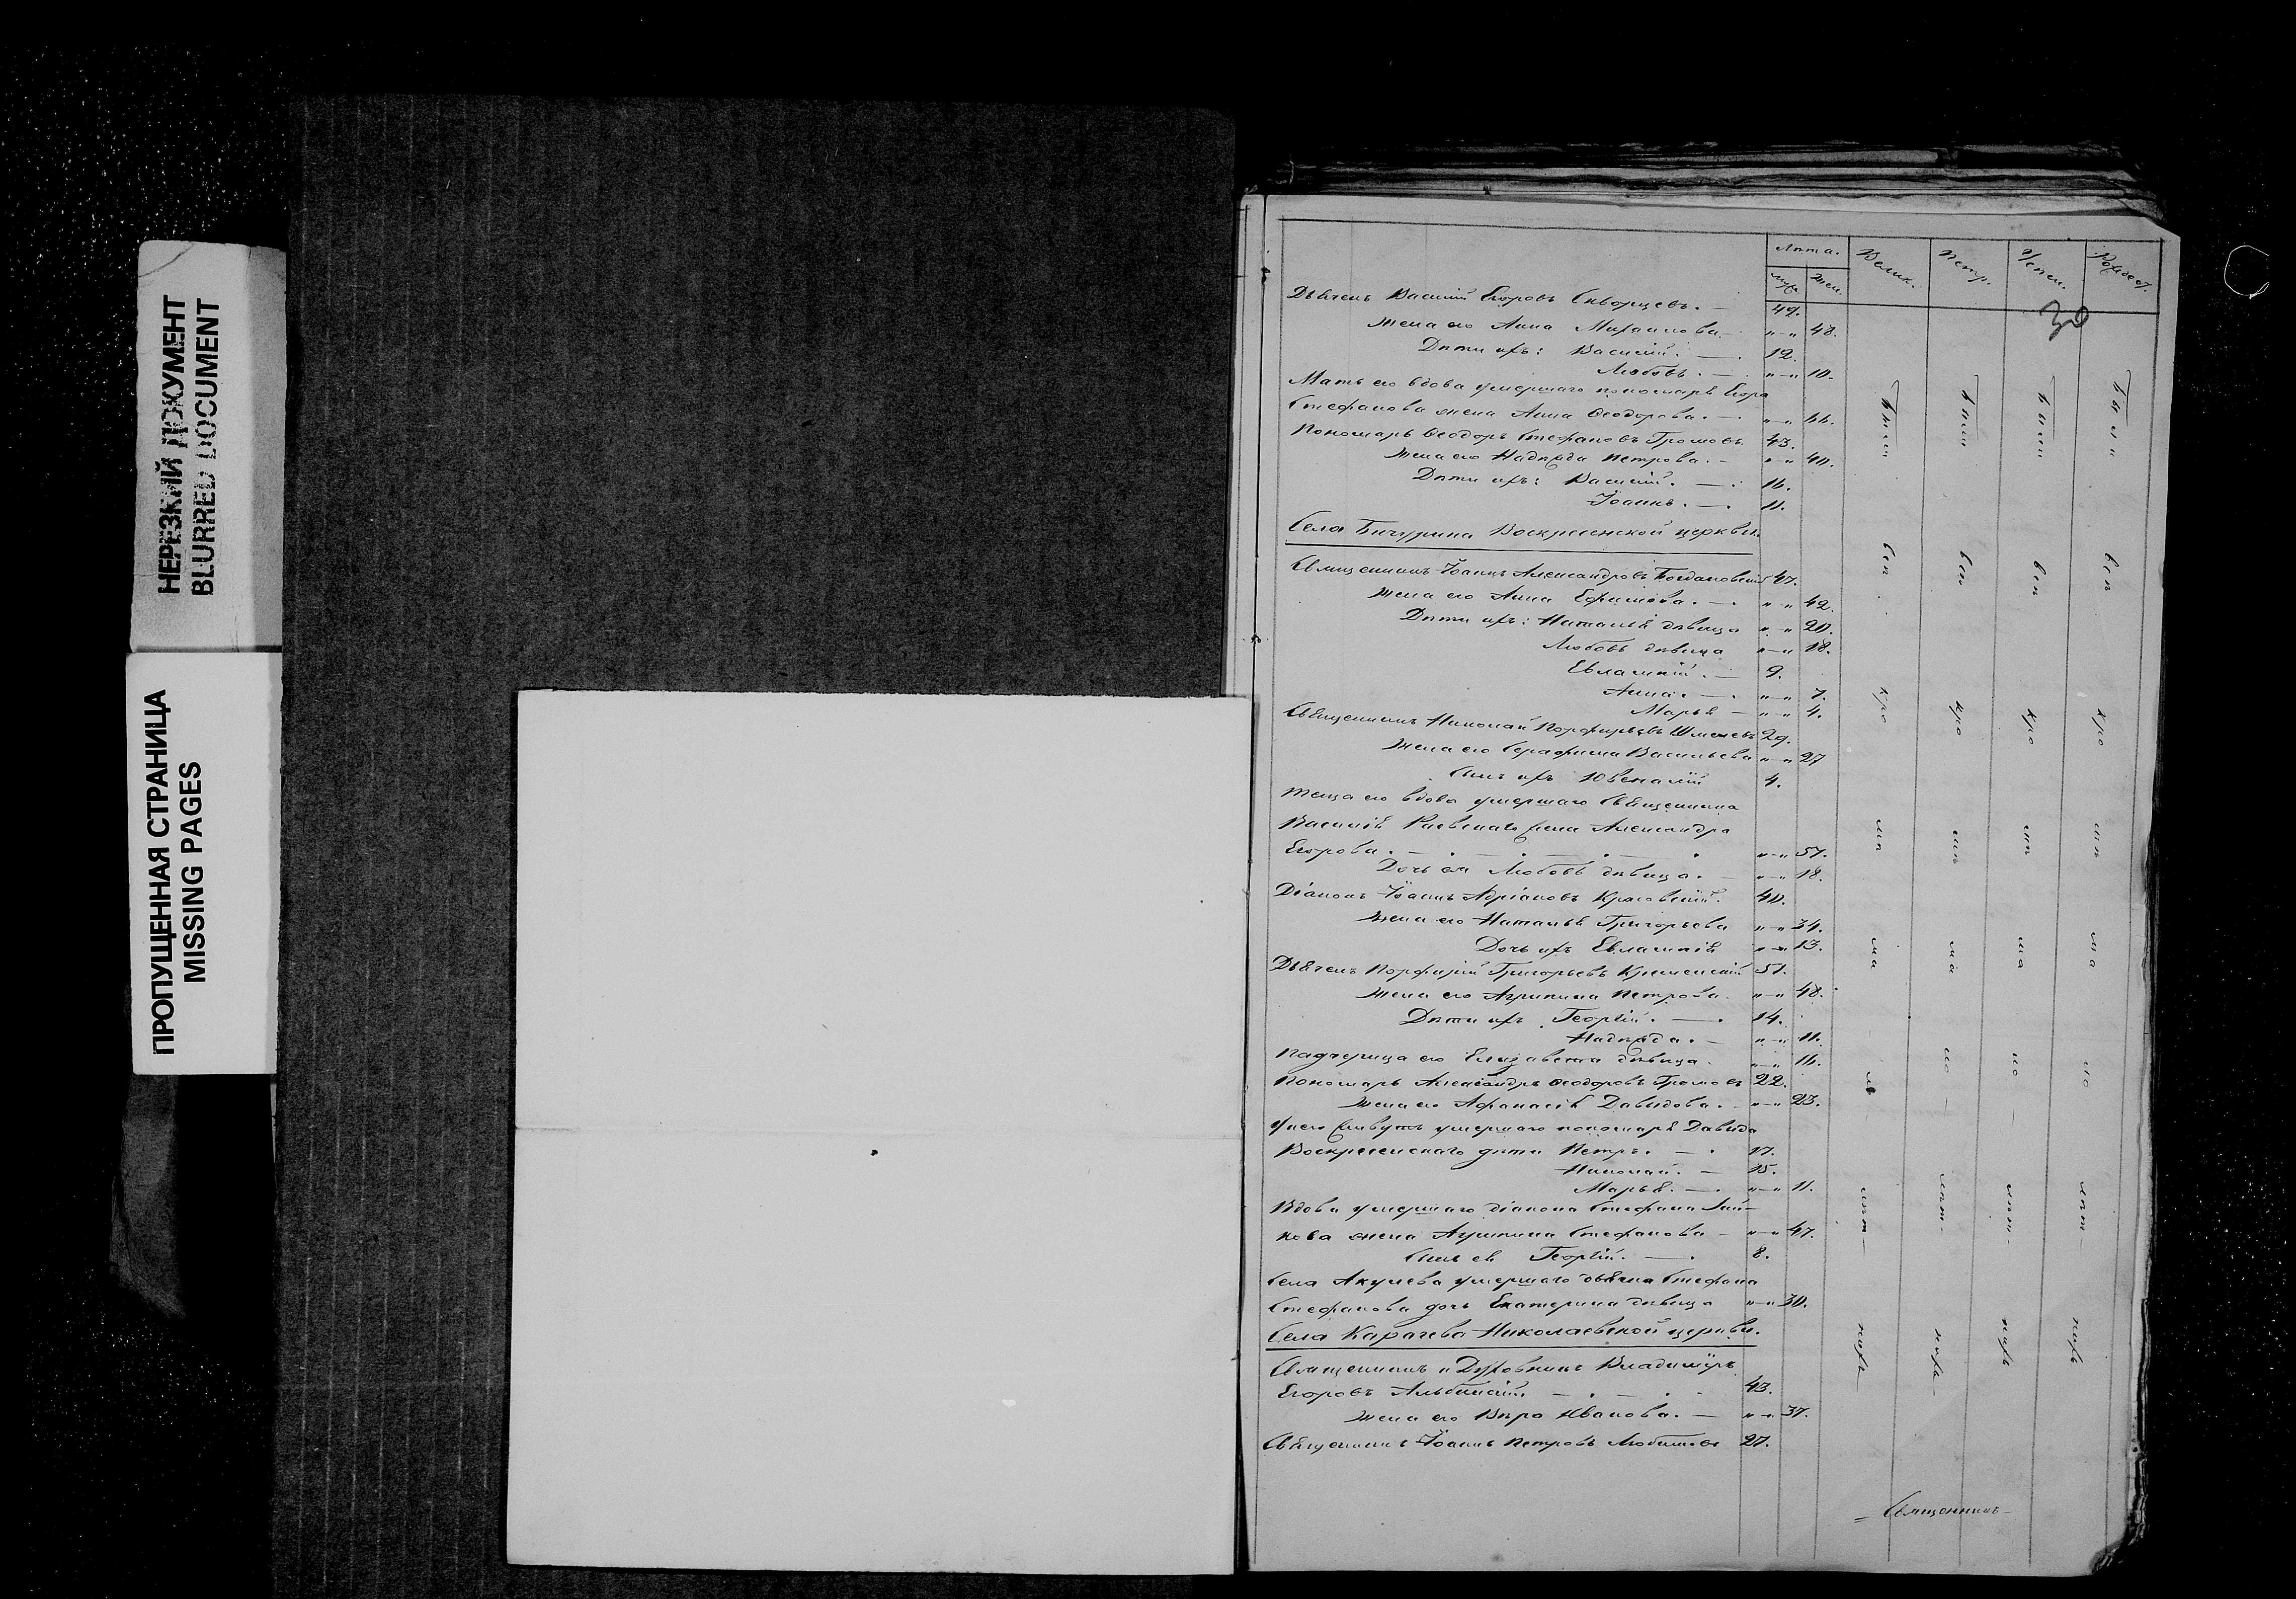 НЕРЕЗКИЙ ДОКУМЕНТ
BLURRED DOCUMENT
ПРОПУЩЕННАЯ СТРАНИЦА
MISSING PAGES
Лѣта.
муж. Жен. Велик. Петр. Успен. Рождест.
30
Дьячекъ Василій Егоровъ Скворцевъ. 49.
Жена его Анна Михаилова. „—„ 48.
Дѣти ихъ: Василій. — 12.
Любовь. — „—„ 10.
Мать его вдова умершаго пономаря Егора
Стефанова жена Анна Ѳеодорова. — „—„ 66.
Пономарь Ѳеодоръ Стефановъ Громовъ. 43.
Жена его Надежда Петрова. — „—„ 40.
Дѣти ихъ: Василій. — 16.
Іоаннъ. — 11.
Села Бичурина Воскресенской церкви.
Священникъ Іоаннъ Александровъ Богдановскій 47.
Жена его Анна Ефимова. — „—„ 42.
Дѣти ихъ: Наталья дѣвица „—„ 20.
Любовь дѣвица „—„ 18.
Евлампій. — 9.
Анна. — „—„ 7.
Марья — „—„ 4.
Священникъ Николай Порфирьевъ 29.
Жена его Серафима Васильева „—„ 27
Сынъ ихъ Ювеналій 4.
Теща его вдова умершаго Священника
Василія Раевскаго жена Александра
Егорова. „—„ 51.
Дочь ея Любовь дѣвица. — „—„ 18.
Діаконъ Іоаннъ Адріановъ Красовскій. 40.
Жена его Наталья Григорьева „—„ 34.
Дочь ихъ Евлампія „—„ 13.
Дьячекъ Порфирій Григорьевъ Кременскій 51.
Жена его Агрипина Петрова. „—„ 48.
Дѣти ихъ Георгій. — 14.
Надежда. — „—„ 11.
Падчерица его Елизавета дѣвица. „—„
Пономарь Александръ Ѳеодоровъ Громовъ 22.
Жена его Афанасія Давыдова. — „—„ 23.
У него живутъ умершаго пономаря Давыда
Воскресенскаго дѣти Петръ. — 17.
Николай. — 15.
Марья. — „—„ 11.
Вдова умершаго діакона Стефана
кова жена Агрипина Стефанова — „—„ 47.
Сынъ ея Георгій. — 8.
Села Акулева умершаго дьячка Стефана
Стефанова дочь Екатерина дѣвица „—„ 30.
Села Карачева Николаевской церкви.
Священникъ и Духовникъ Владиміръ
Егоровъ Альбинскій. 43.
Жена его Вѣра Иванова. — „—„ 37.
Священникъ Іоаннъ Петровъ Любимовъ 27.
Были Были Были Были
всп всп всп всп
кро кро кро кро
мѣ мѣ мѣ мѣ
ма ма ма ма
ло ло ло
лѣт лѣт лѣт лѣт
нихъ нихъ нихъ нихъ
Священникъ